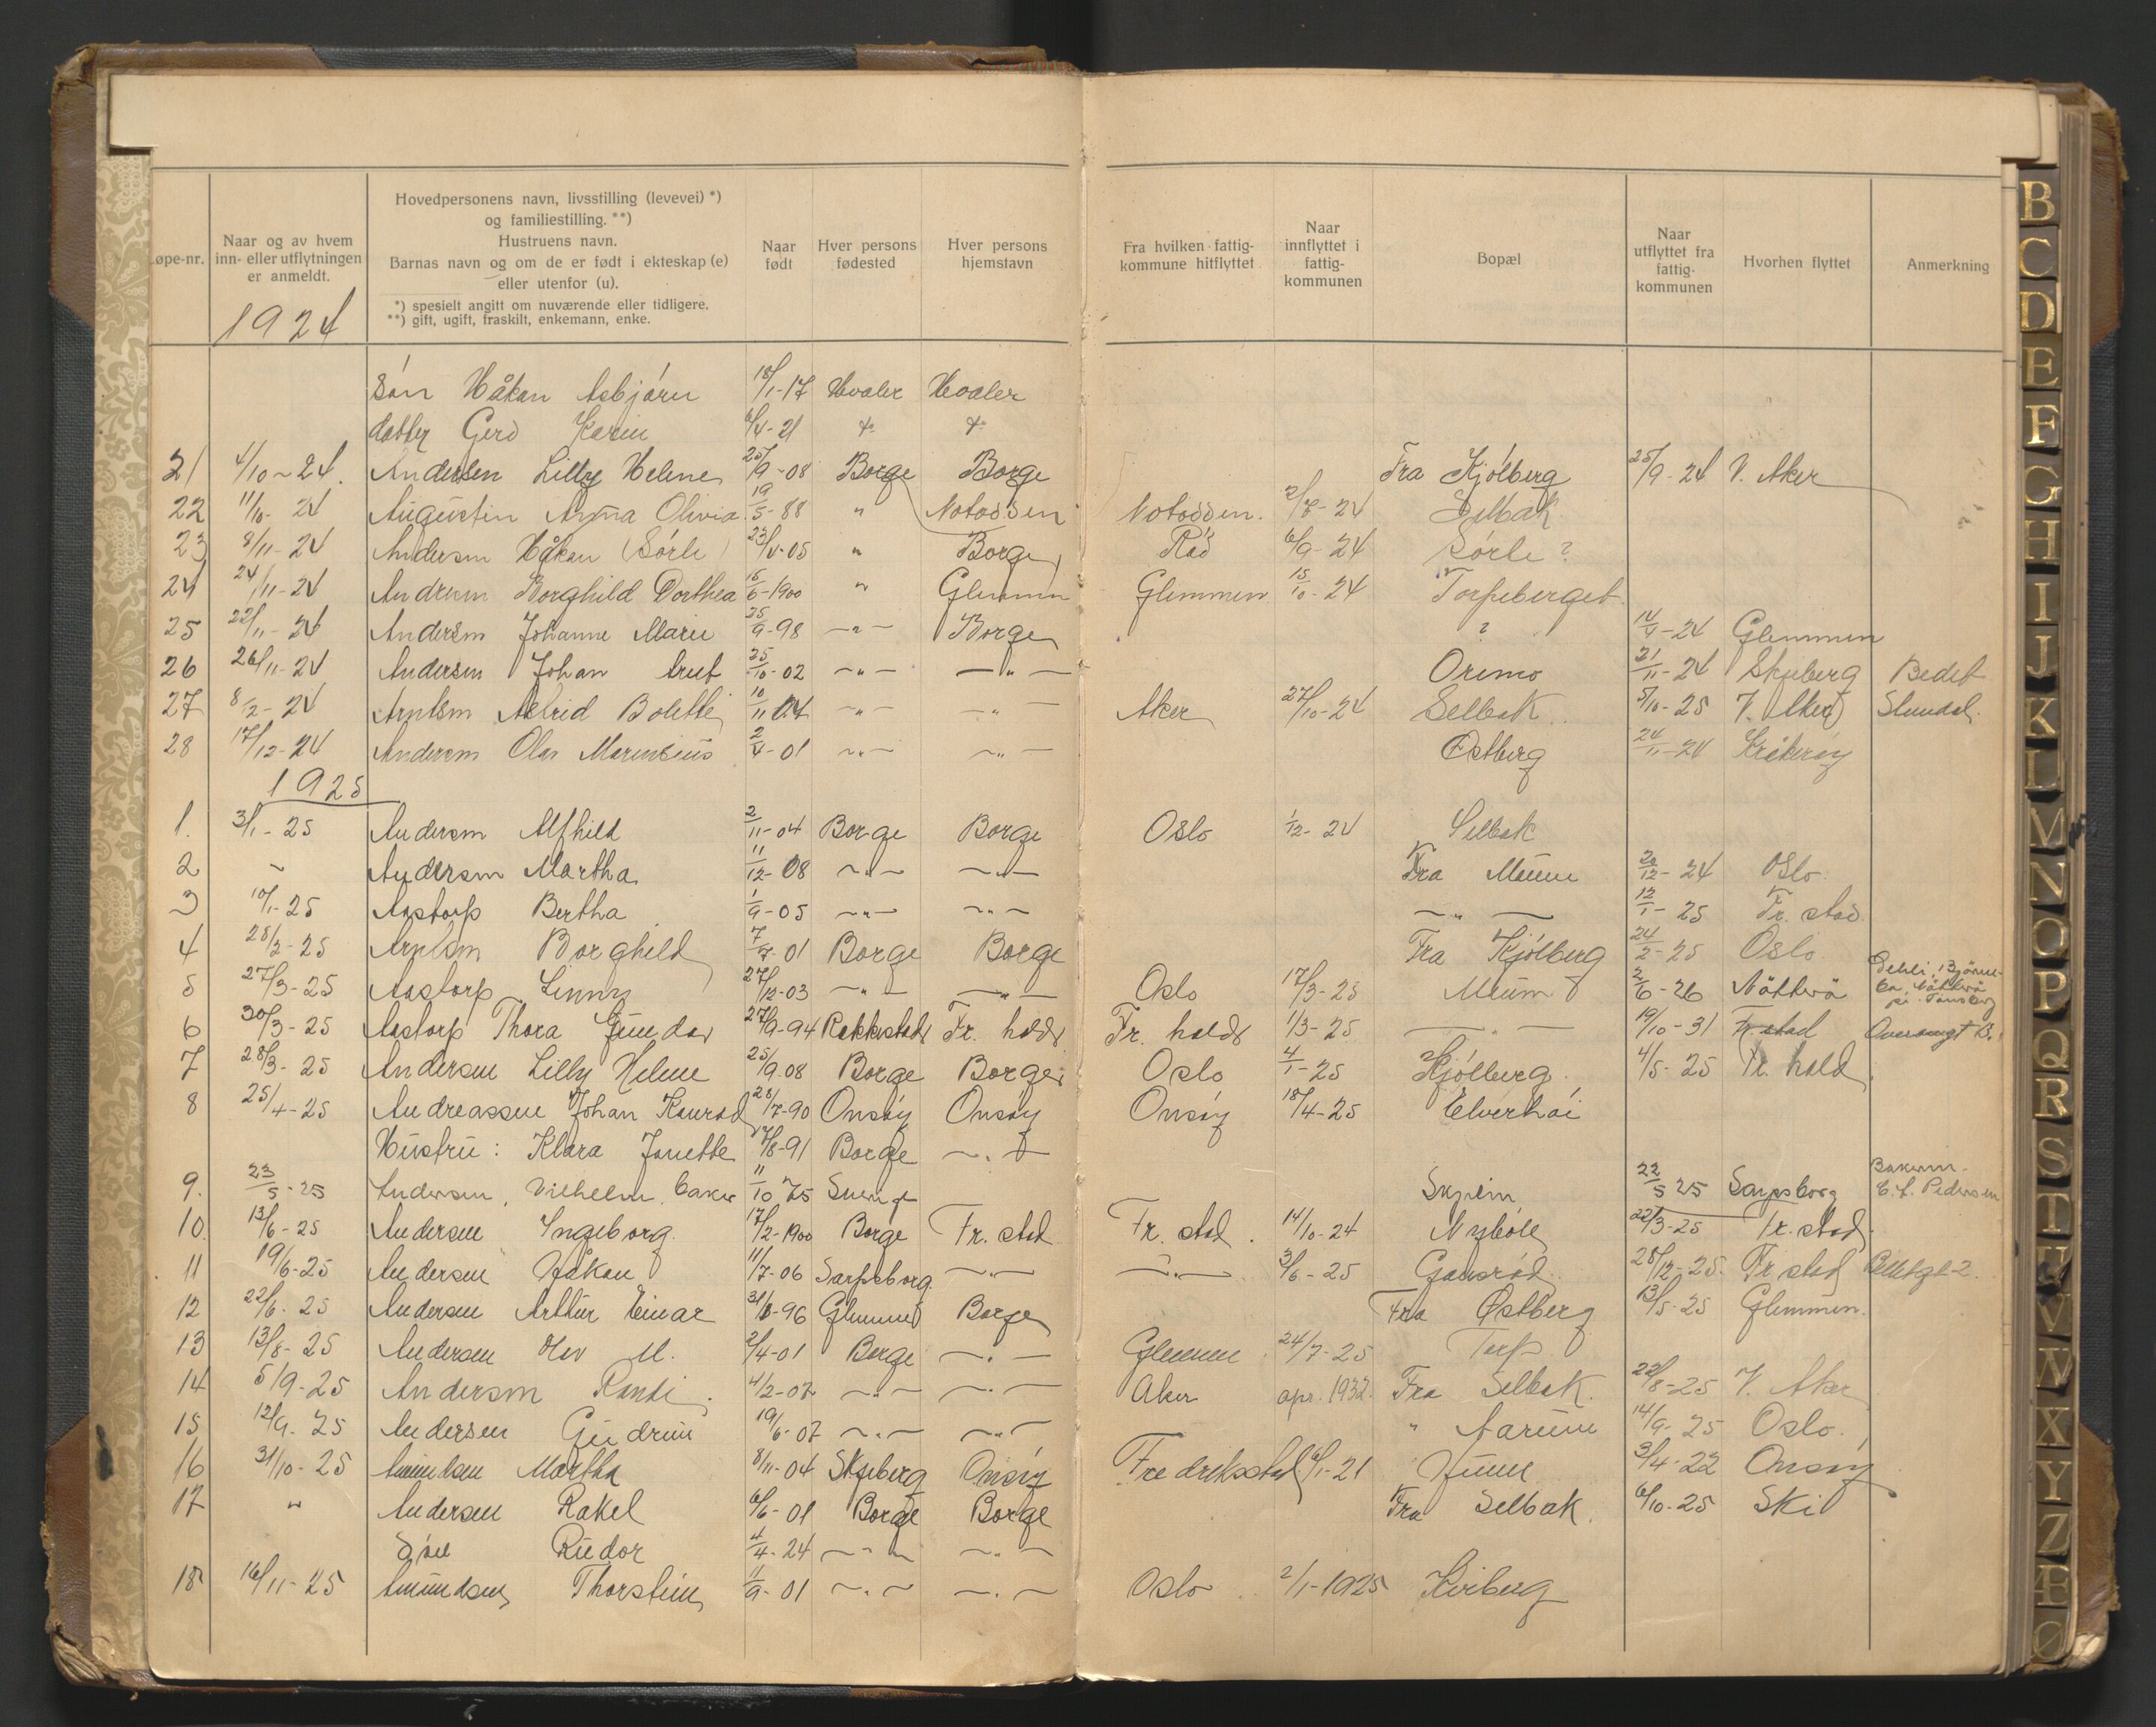 øpe-nr.
Naar og av hvem
inn- eller utflytningen
er anmeldt.
1924
Hovedpersonens navn, livsstilling (levevei) *)
og familiestilling. **)
Hustruens navn.
Barnas navn og om de er født i ekteskap (e)
eller utenfor (u).
*) spesielt angitt om nuværende eller tidligere.
**) gift, ugift, fraskilt, enkemann, enke.
Naar
født
Hver persons
fødested
Hver persons
hjemstavn
Fra hvilken fattig-
kommune hitflyttet
Naar
innflyttet i
fattig-
kommunen
Bopæl
Naar
utflyttet fra
fattig-
kommunen
Hvorhen flyttet
Anmerkning
Søn Håkan Asbjørn 18/1-17 Hvaler Hvaler
datter Gerd Karin 6/4-21
21 4/10-24. Andersen Lilly Helene 25/9-08 Borge Borge Fra Kjølberg 25/9-24 V. Aker
22 11/10-24 Augustin Anna Olivia 19/5-88 " Notodden Notodden. 2/8-24 Selbak
23 8/11-24 Andersen Håkan (Sørli) 23/4-05 " Borge Råd 6/9-24 Sørli ?
24 24/11-24 Andersen Borghild Dorthea 15/6-1900 " Glemmen Glemmen 15/10-24 Torpeberget
25 22/11-24 Andersen Johanne Marie 25/9-98 -"- Borge ? 14/9-24 Glemmen
26 26/11-24 Andersen Johan 25/10-02 -"- -"- Oremo 21/11-24 Skjeberg
27 8/12-24 Arntsen Astrid Bolette 10/11 04 -"- -"- Aker 27/10-24 Selbak 5/10-25 V. Aker
28 17/12-24 Andersen Olav Marensius 2/4-01 -"- -"- Østberg 24/11-24 Kråkerøy
1925
1. 3/1-25 Andersen Alfhild 2/11-04 Borge Borge Oslo 1/12-24 Selbak
2 " Andersen Martha 11/12-08 -"- -"- Fra Moum 20/12-24 Oslo.
3 10/1-25 Aastorp Bertha 1/9-05 -"- -"- -"- 12/1-25 Fr. stad.
4 28/2-25 Arntsen Borghild 7/7-01 Borge Borge Fra Kjølberg 24/2-25 Oslo.
5 27/3-25 Aastorp Linny 27/12-03 -"- -"- Oslo 17/3-25 Moum 2/6-26 Nötterö
6 30/3-25 Aastorp Thora Gunda 27/9-94 Rakkestad Fr. hald Fr. hald 1/3-25 -"- 19/10-31 Fr. stad
7 28/3-25 Andersen Lilly Helene 25/9-08 Borge Borge Oslo 4/1-25 Kjølberg. 4/5-25 Fr. hald
8 25/4-25 Andreassen Johan Konrad 28/7-90 Onsøy Onsøy Onsøy 18/4-25 Elverhøi
Hustru: Klara Janette /8-91 Borge -"-
9. 23/5-25 Andersen, Vilhelm, baker 11/10 75 Sverige 22/5 25 Sarpsborg Pedersen
10. 13/6-25 Andersen Ingeborg 17/2-1900 Borge Fr. stad Fr. stad. 14/10-24 Nybøle 22/3-25 Fr. stad.
11 19/6-25 Andersen Håkan 11/7-06 Sarpsborg. -"- -"- 3/6-25 Gansrød 28/12-25. Fr. stad
12 22/6-25 Andersen Arthur Einar 31/8-96 Glemmen Borge Fra Østberg 13/5-25 Glemmen.
13 13/8-25 Andersen Olav M. 2/4-01 Borge -"- Glemmen 24/7-25 Torp
14 5/9-25 Andersen Randi 4/2-07 -"- -"- Aker apr. 1932. Fra Selbak. 22/8-25 V. Aker
15 12/9-25 Andersen Gudrun 19/6-07 -"- -"- " Aarum 14/9-25 Oslo.
16 31/10-25 Amundsen Martha 8/11-04 Skjeberg Onsøy Fredrikstad 6/1-21 Hunn 3/4-22 Onsøy
17 " Andersen Rakel 6/6-01 Borge Borge Fra Selbak. 6/10-25 Ski
Søn Reidor 4/4-24 -"- -"-
18 16/11-25 Amundsen Thorstein 11/9-01 -"- -"- Oslo 2/1-1925 Kviberg
B
C
D
E
F
G
H
I
J
K
L
M
N
O
P
Q
R
S
T
U
V
W
X
Y
Z
Æ
Ø